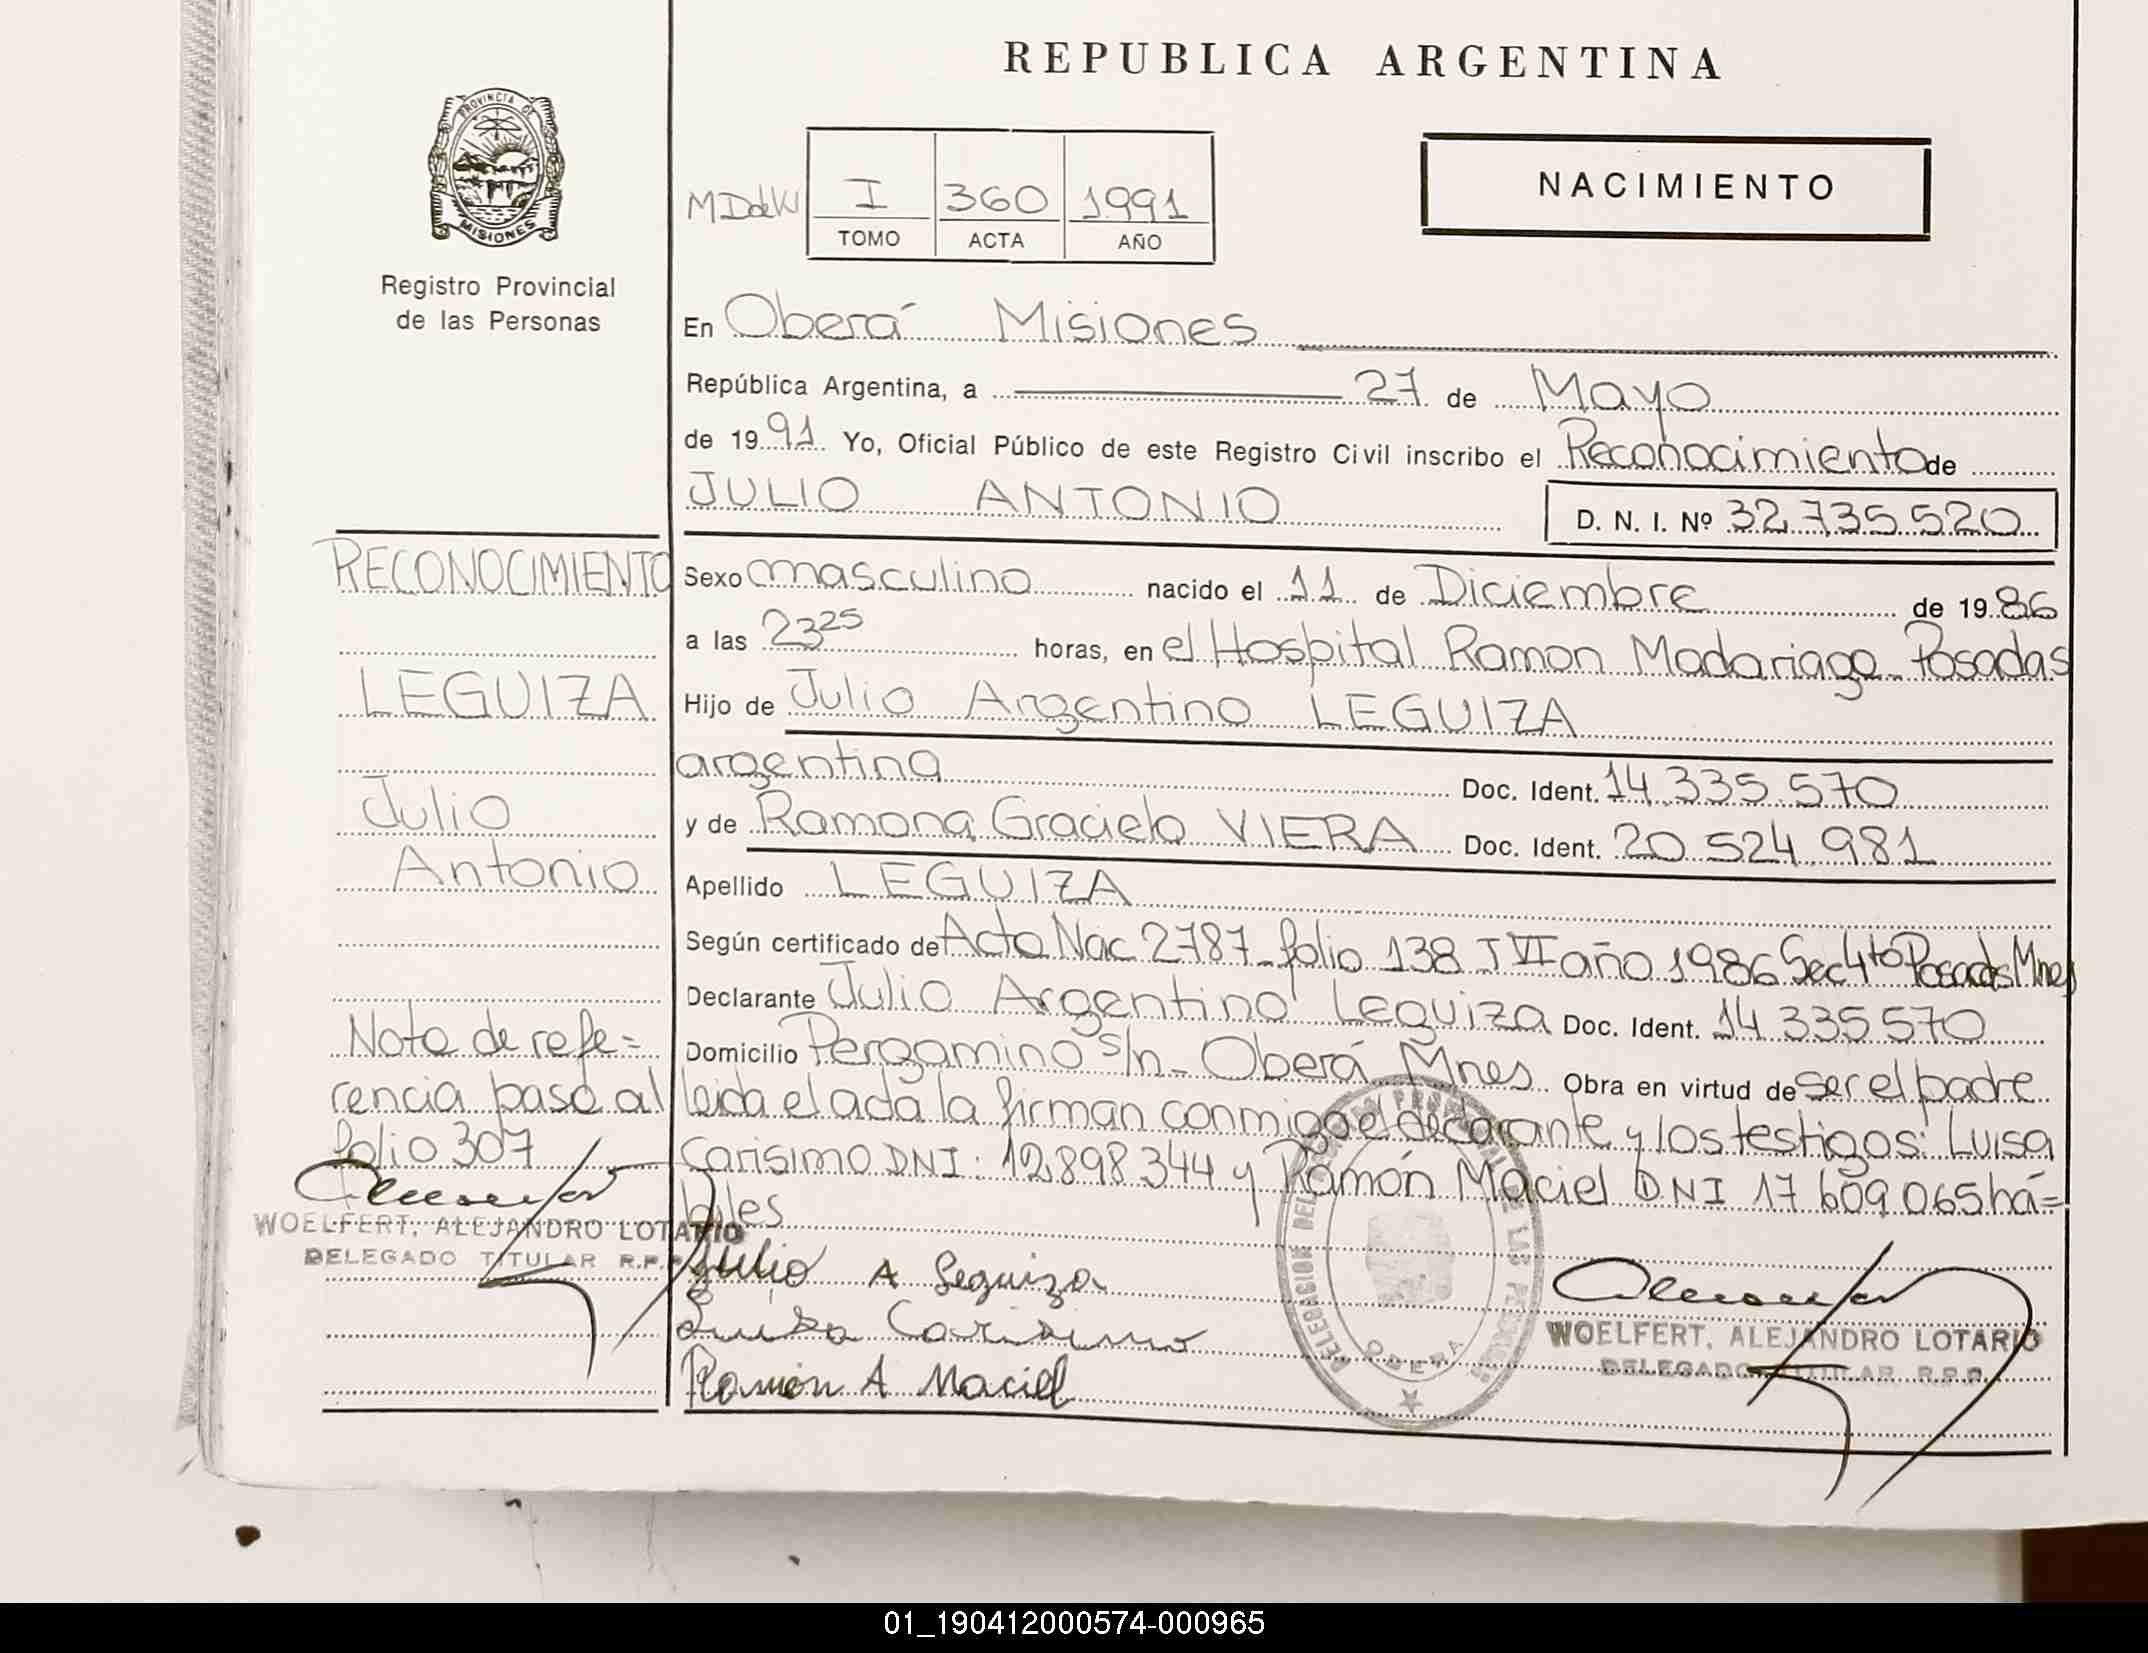 REPUBLICA ARGENTINA
PROVINCIA DE
MISIONES
Registro Provincial
de las Personas
I 360 1991
TOMO ACTA AÑO
NACIMIENTO
En Oberá Misiones
República Argentina, a 27 de Mayo
de 1991 Yo, Oficial Público de este Registro Civil inscribo el Reconocimiento de
JULIO ANTONIO D. N. I. Nº 32.735.520
Sexo masculino nacido el 11 de Diciembre de 1986
a las 23 25 horas, en el Hospital Ramon Madariaga - Posadas
Hijo de Julio Argentino LEGUIZA
argentina Doc. Ident. 14.335.570
y de Ramona Graciela VIERA Doc. Ident. 20 524 981
Apellido LEGUIZA
Según certificado de Acta Nac 2787 - folio 138 T VI año 1986 Sec 4to Posadas Mnes
Declarante Julio Argentino Leguiza Doc. Ident. 14 335 570
Domicilio Pergamino s/n - Oberá Mnes Obra en virtud de ser el padre
leida el acta la firman conmigo el declarante y los testigos: Luisa
Carisimo DNI: 12898344 y Ramón Maciel DNI 17 609 065 há=
biles
Julio A Leguiza
Luisa Carisimo
Ramón A Maciel
RECONOCIMIENTO
LEGUIZA
Julio
Antonio
Nota de refe=
rencia pasa al
folio 307
WOELFERT, ALEJANDRO LOTARIO
DELEGADO TITULAR R.P.P.
DELEGACION DEL REGISTRO PROVINCIAL DE LAS PERSONAS
OBERA
WOELFERT, ALEJANDRO LOTARIO
DELEGADO TITULAR R.P.P.
01_190412000574-000965